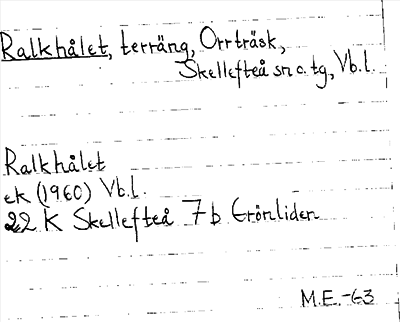 Ralkhålet, terräng, Orrträsk,
Skellefteå sn o. tg, Vb.l.
Ralkhålet
ek (1960) Vb.l.
22 K Skellefteå 7 b Grönliden
M.E.-63